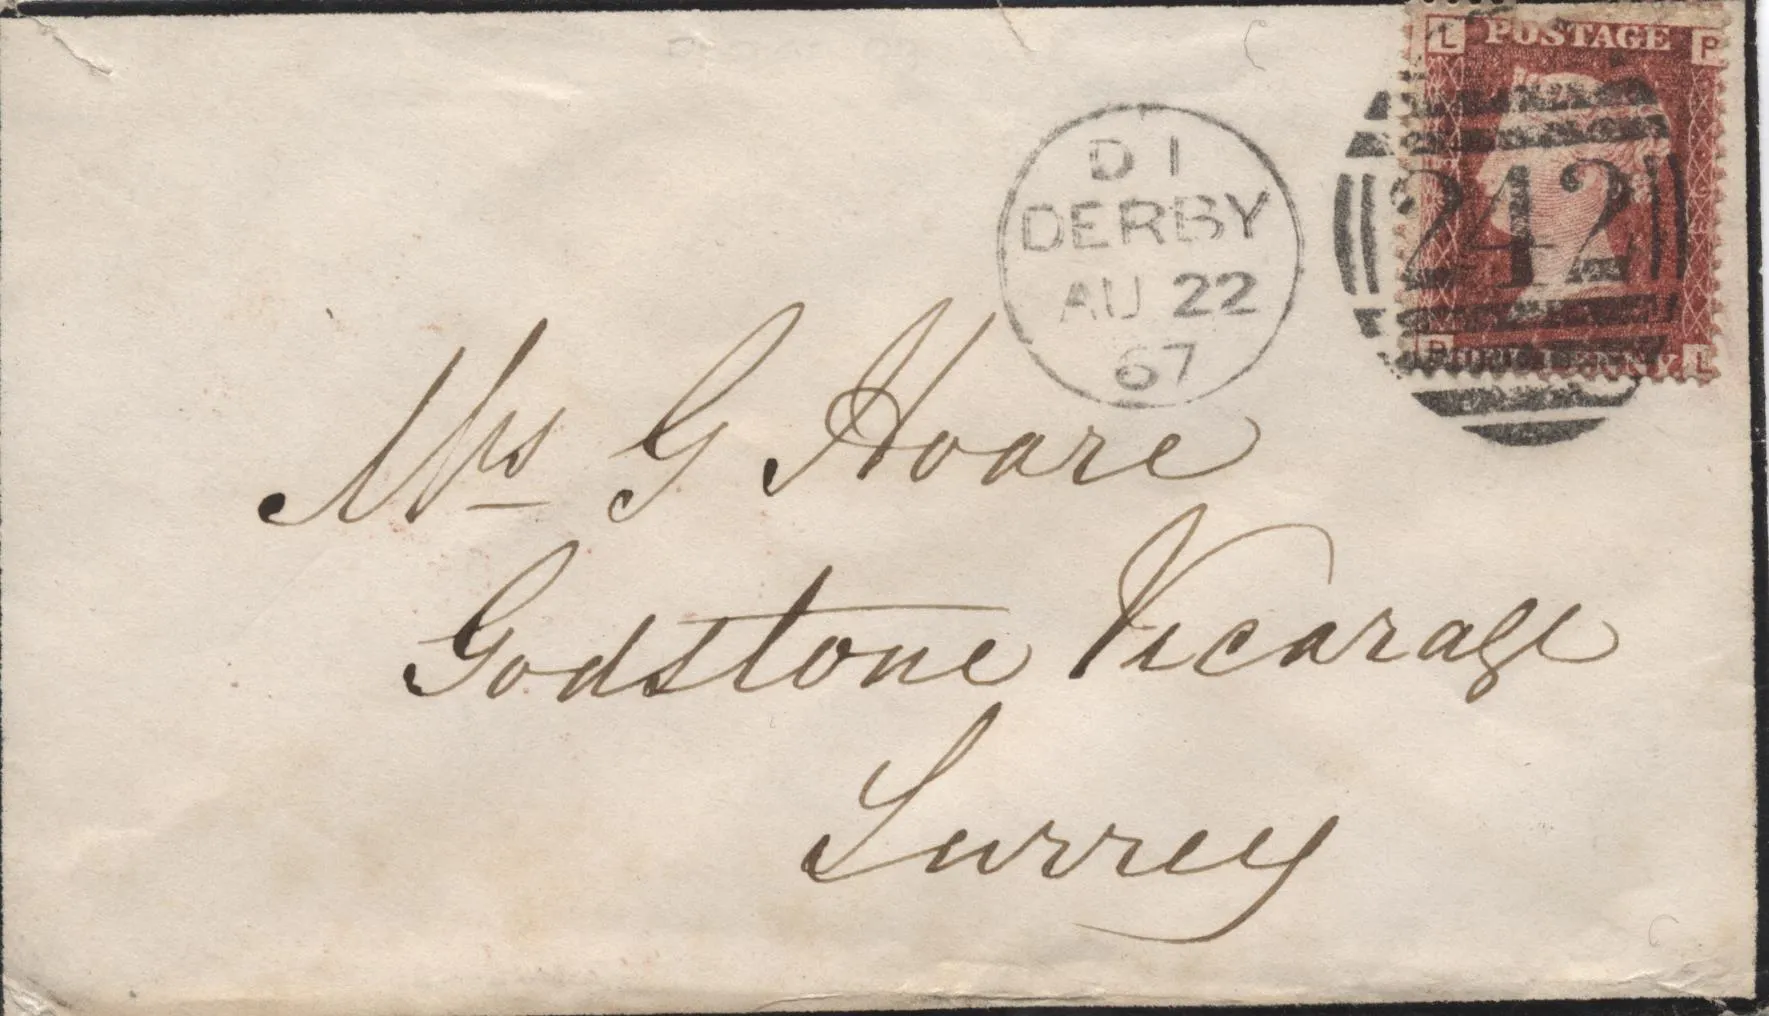 L POSTAGE P
D 1
DERBY
AU 22
67
242
P ONE PENNY L
Mrs G Hoare
Godstone Vicarage
Surrey